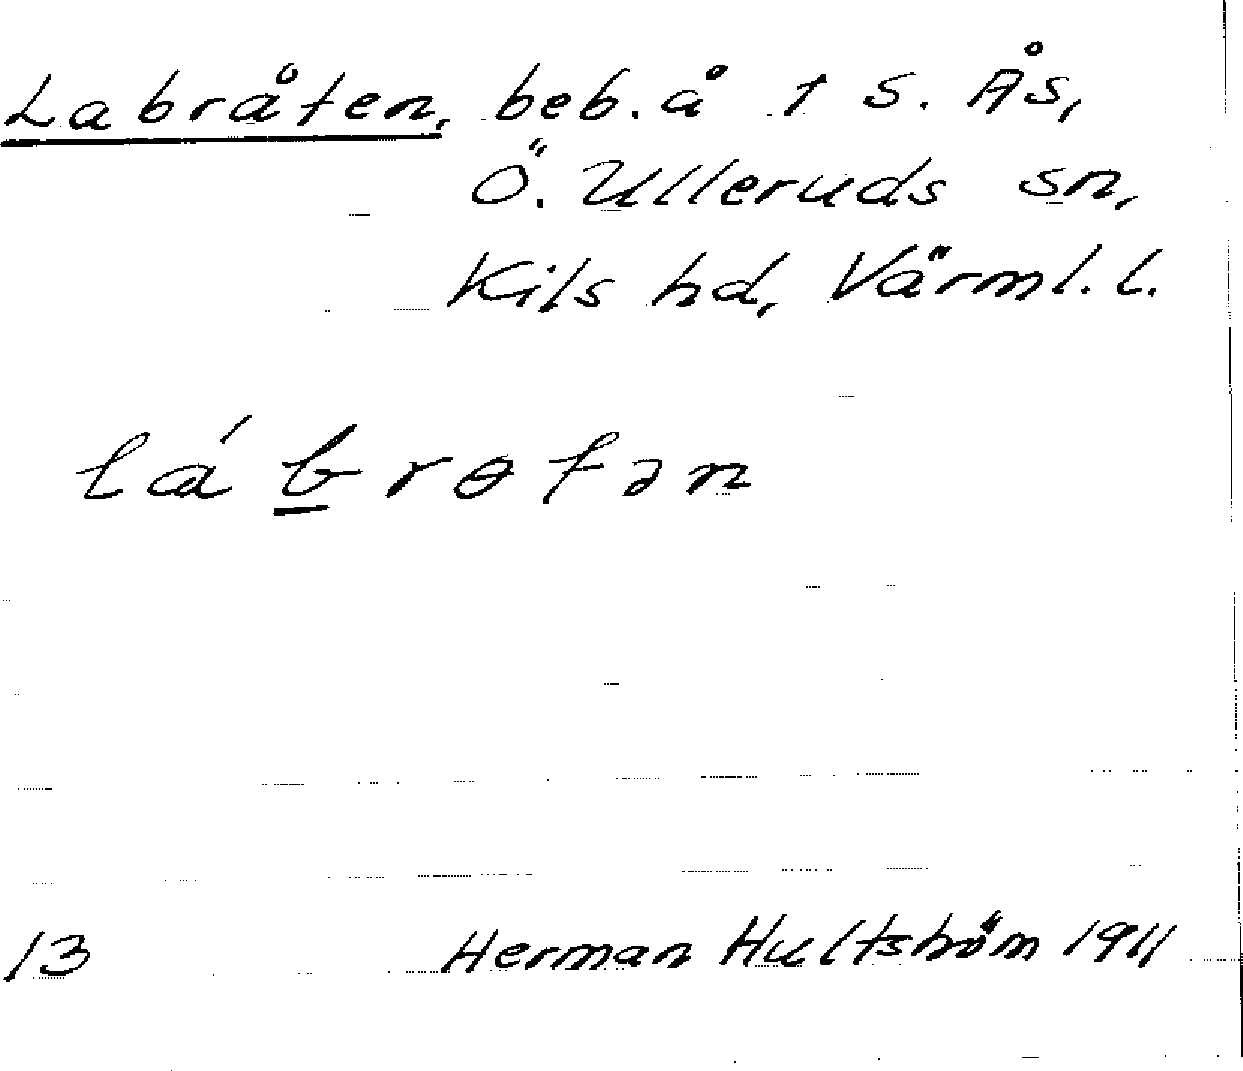 Labråten, beb. å 1 S. Ås,
Ö. Ulleruds sn,
Kils hd, Värml. l.
lá b rɵtən
13 Herman Hultström 1911